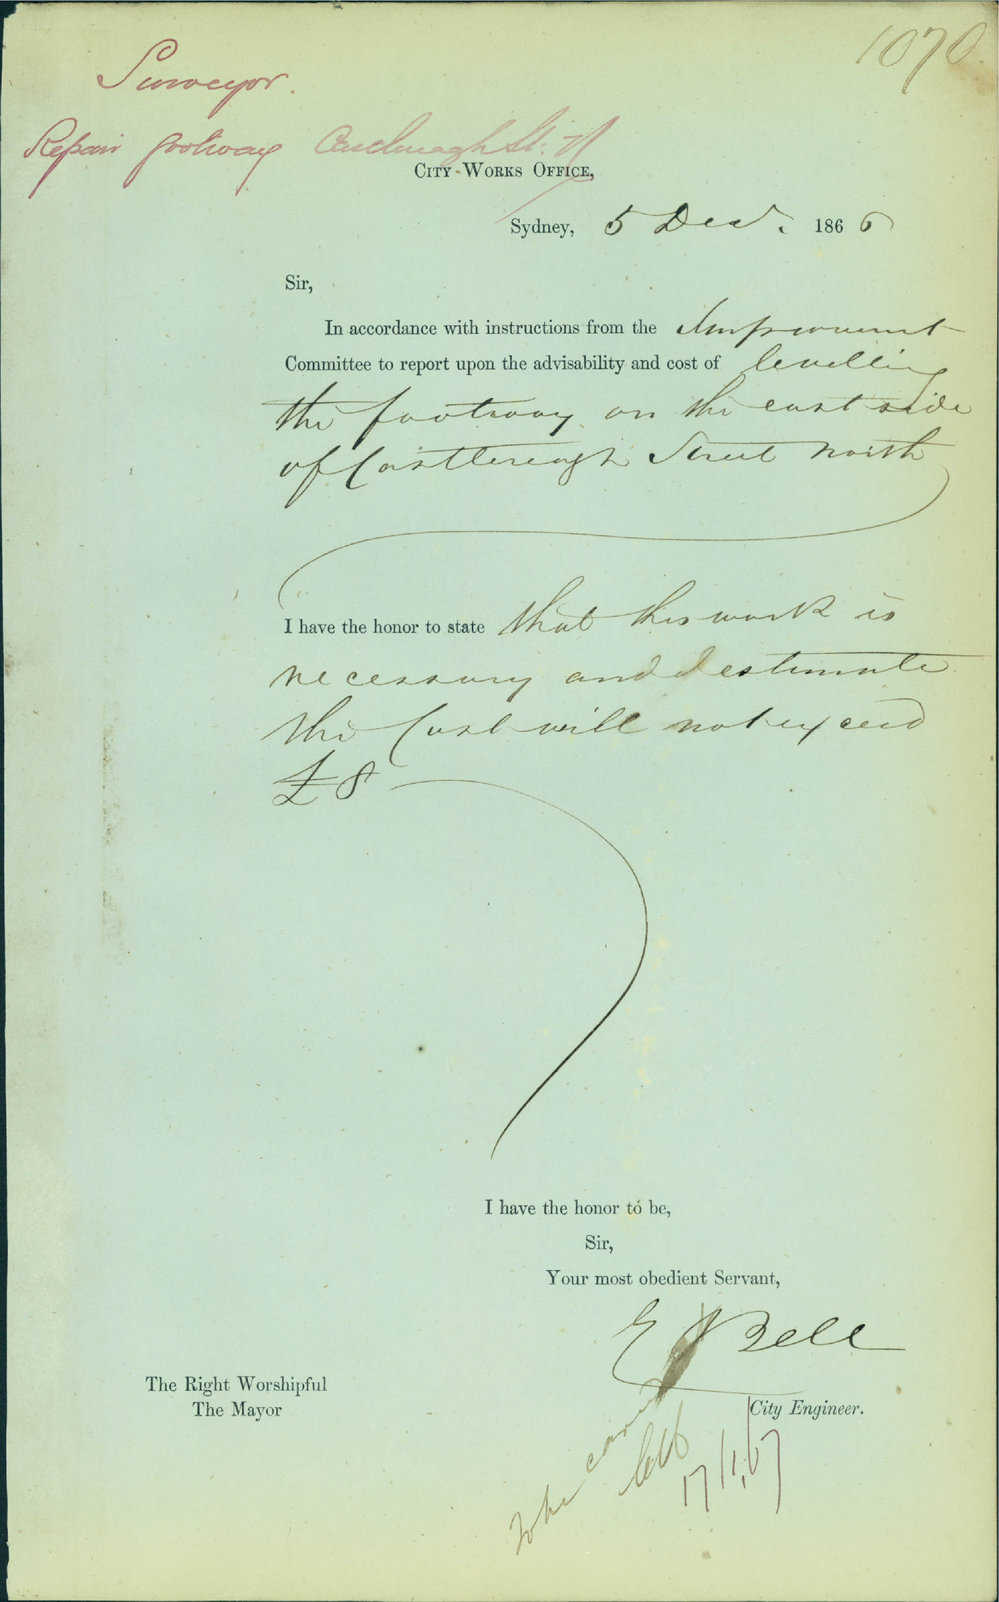 1070.
Surveyor.
Repair footway Castlereagh St. N
CITY WORKS OFFICE,
Sydney, 5 Decr. 1866
Sir,
In accordance with instructions from the Improvement
Committee to report upon the advisability and cost of levelling
the footway on the east side
of Castlereagh Street North
I have the honor to state that this work is
necessary and I estimate
the Cost will not exceed
£8
I have the honor to be,
Sir,
Your most obedient Servant,
E Bell
The Right Worshipful
The Mayor
City Engineer.
17/1/67